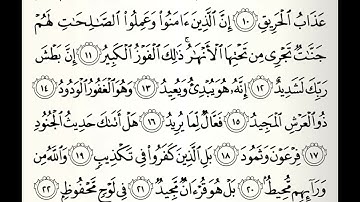 عَذَابُ ٱلْحَرِيقِ ١٠ إِنَّ ٱلَّذِينَ ءَامَنُوا۟ وَعَمِلُوا۟ ٱلصَّـٰلِحَـٰتِ لَهُمْ
جَنَّـٰتٌ تَجْرِى مِن تَحْتِهَا ٱلْأَنْهَـٰرُ ۚ ذَٰلِكَ ٱلْفَوْزُ ٱلْكَبِيرُ ١١ إِنَّ بَطْشَ
رَبِّكَ لَشَدِيدٌ ١٢ إِنَّهُۥ هُوَ يُبْدِئُ وَيُعِيدُ ١٣ وَهُوَ ٱلْغَفُورُ ٱلْوَدُودُ ١٤
ذُو ٱلْعَرْشِ ٱلْمَجِيدُ ١٥ فَعَّالٌ لِّمَا يُرِيدُ ١٦ هَلْ أَتَىٰكَ حَدِيثُ ٱلْجُنُودِ
١٧ فِرْعَوْنَ وَثَمُودَ ١٨ بَلِ ٱلَّذِينَ كَفَرُوا۟ فِى تَكْذِيبٍ ١٩ وَٱللَّهُ مِن
وَرَآئِهِم مُّحِيطٌۢ ٢٠ بَلْ هُوَ قُرْءَانٌ مَّجِيدٌ ٢١ فِى لَوْحٍ مَّحْفُوظٍۭ ٢٢